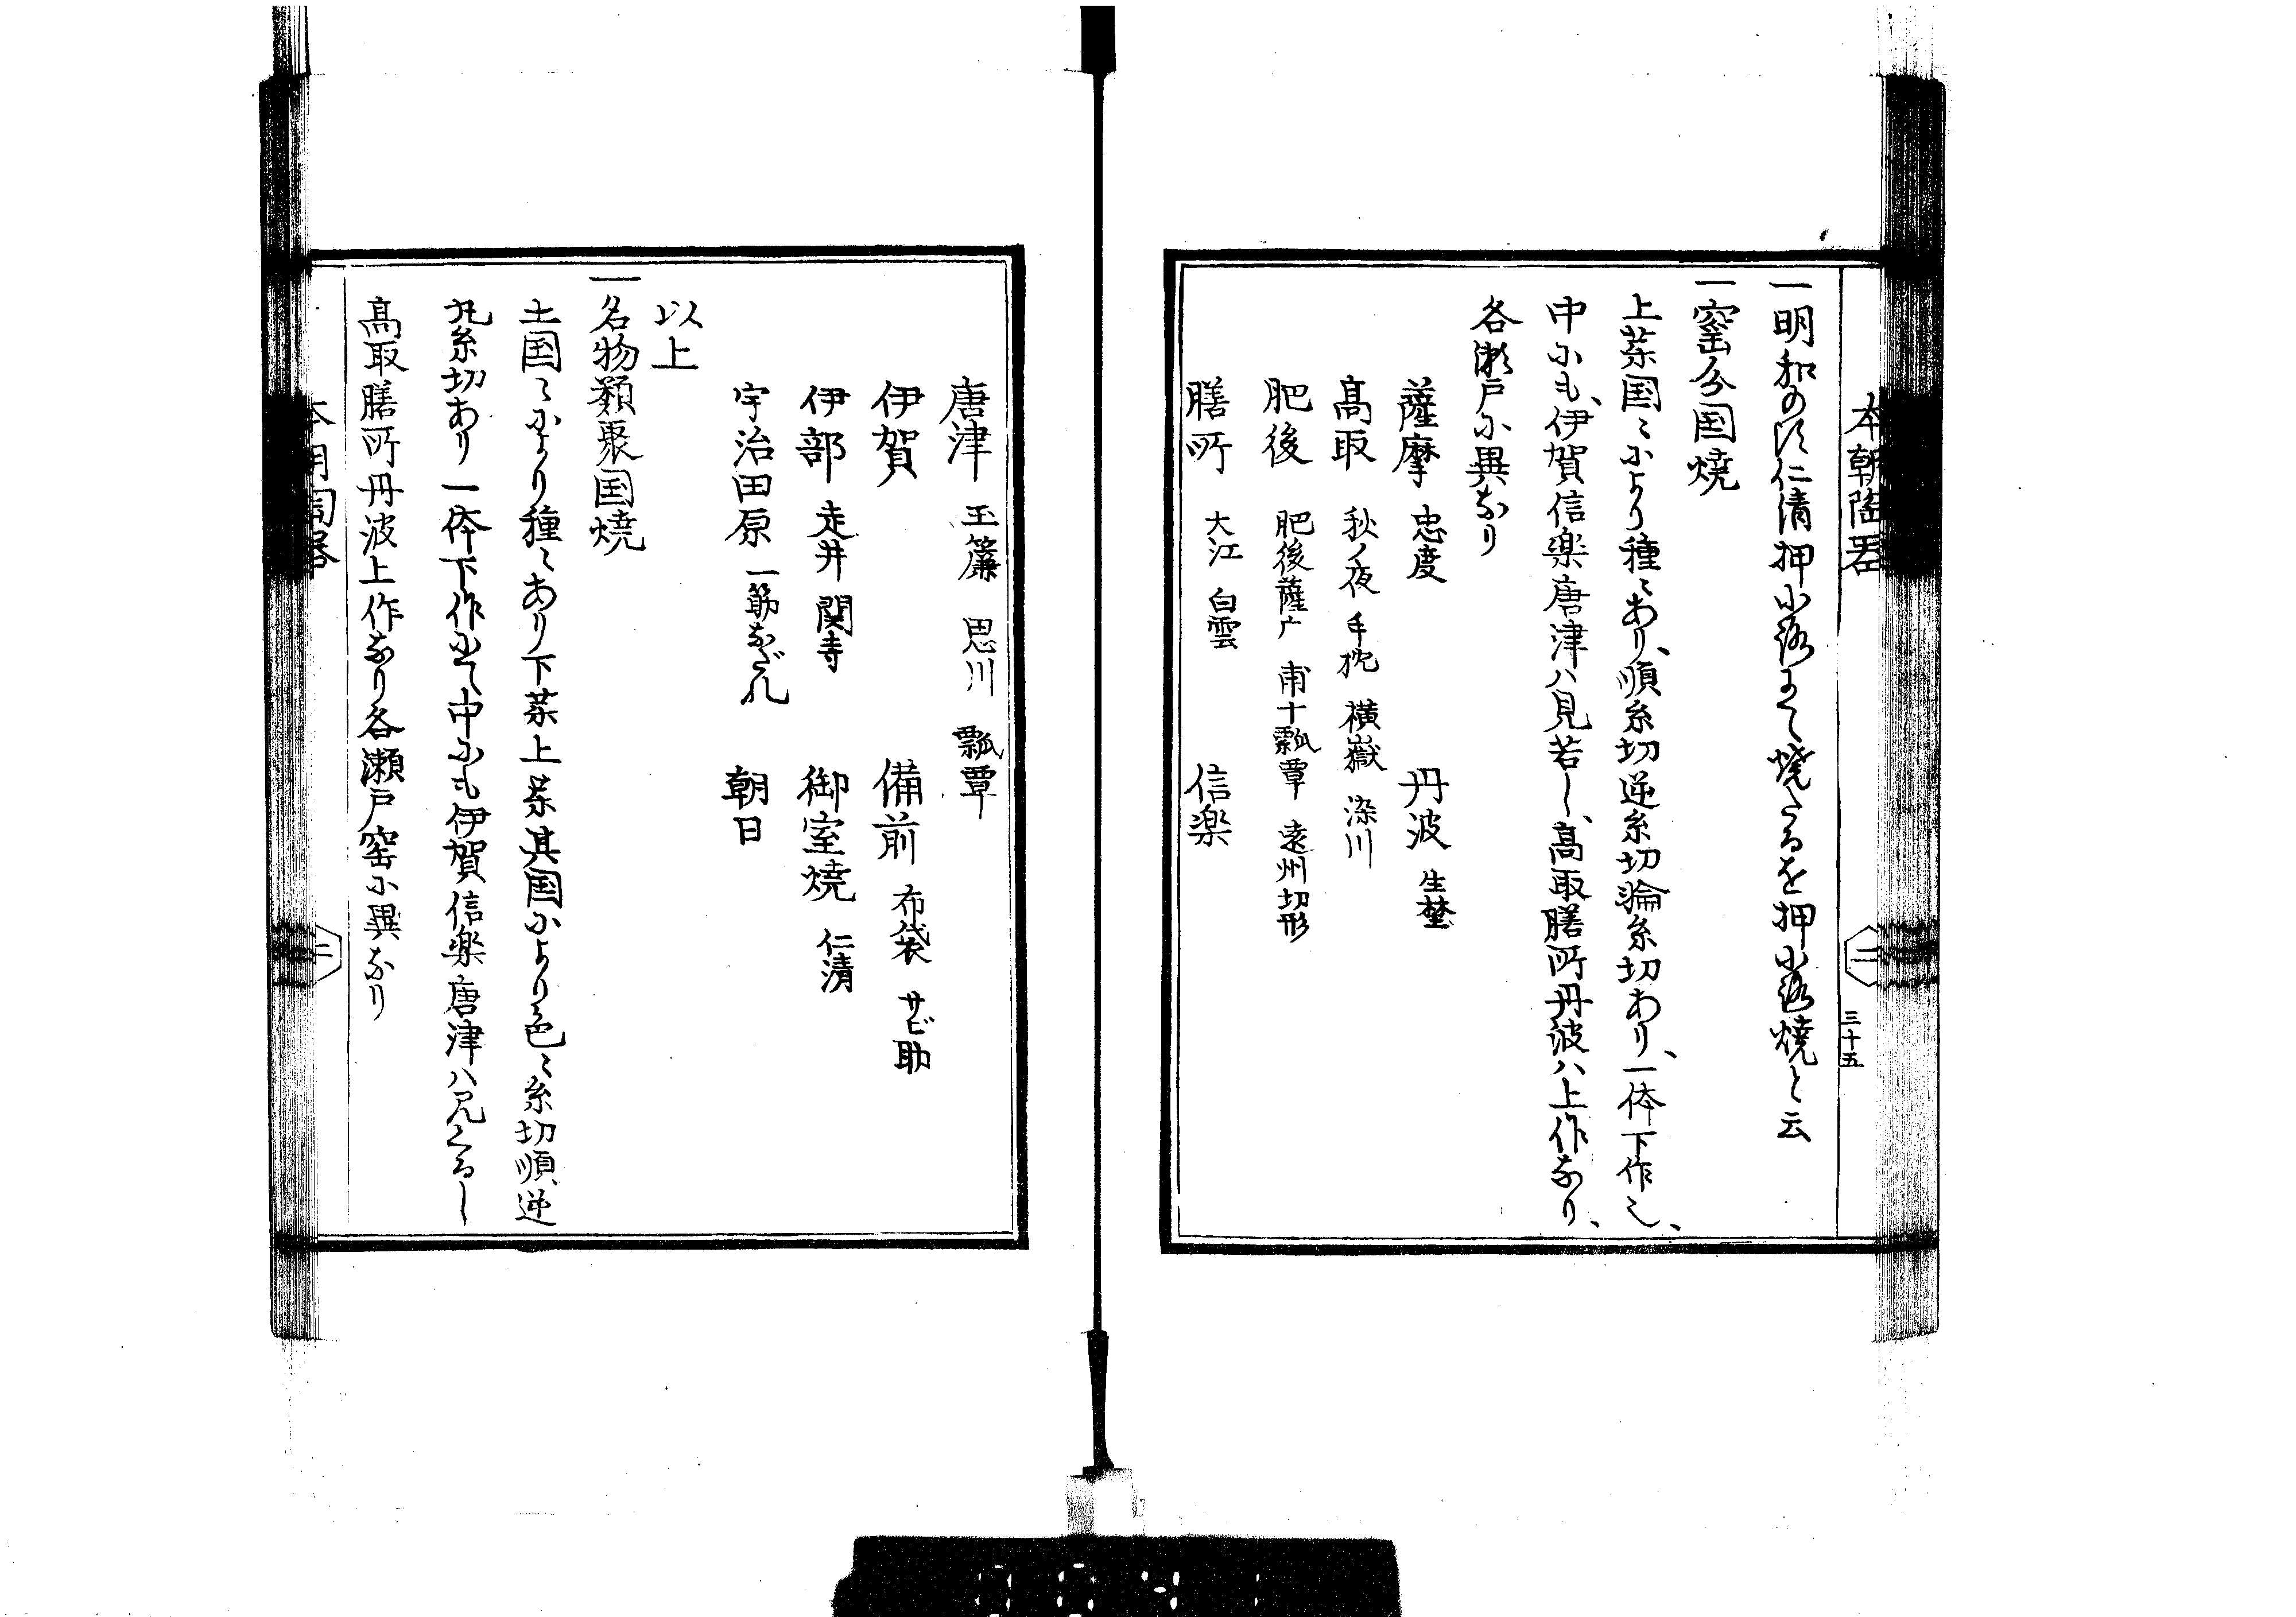 本朝陶器
二
三十五
一明和の頃仁清押小路にて焼たるを押小路焼と云
一窯分国焼
上薬国〻により種〻あり、順糸切逆糸切輪糸切あり、一体下作也、
中にも、伊賀信楽唐津ハ見若し、高取膳所丹波ハ上作なり、
各瀬戸に異なり
薩摩 忠度 丹波 生埜
高取 秋ノ夜 手枕 横嶽 染川
肥後 肥後薩广 甫十瓢覃 遠州切形
膳所 大江 白雲 信楽
唐津 玉簾 思川 瓢覃
伊賀 備前 布袋 サビ助
伊部 走井 関寺 御室焼 仁清
宇治田原 一筋なだれ 朝日
以上
一名物類聚国焼
土国〻により種〻あり下薬上薬其国により色〻糸切順逆
丸糸切あり一体下作にて中にも伊賀信楽唐津ハ見くるし
高取膳所丹波上作なり各瀬戸窑に異なり